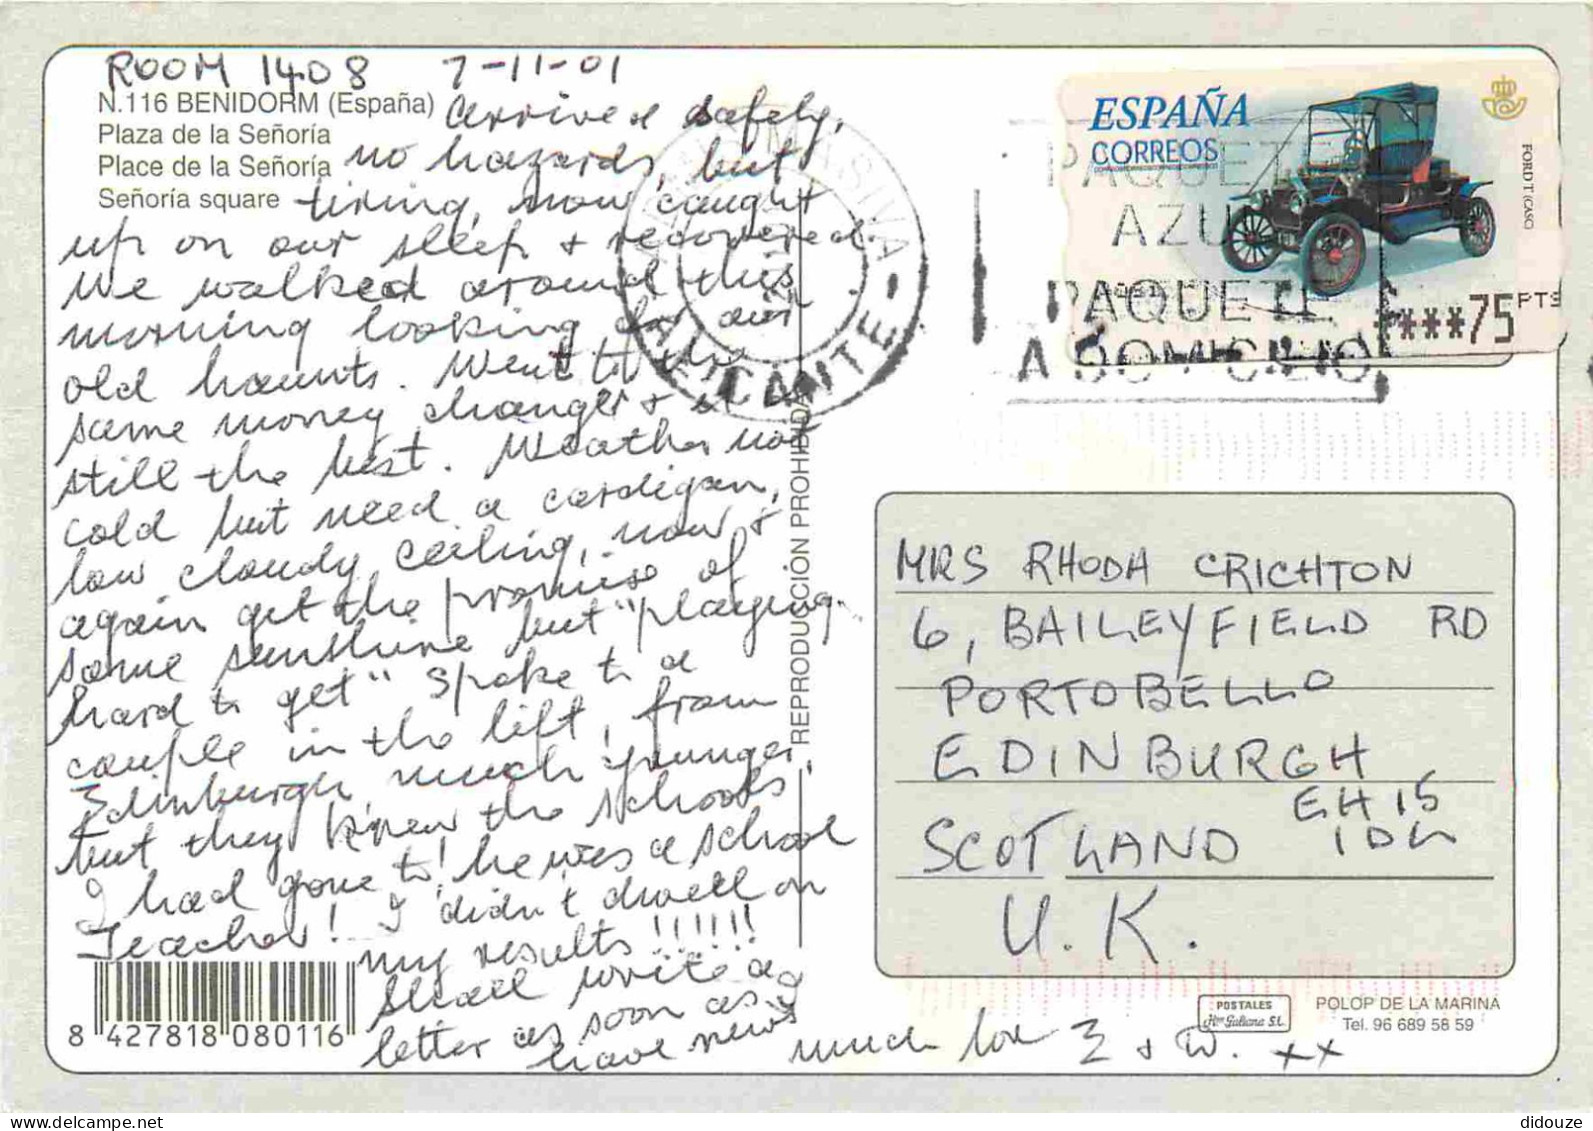 ROOM 1408 7-11-01
N.116 BENIDORM (España)
Plaza de la Señoría
Place de la Señoría
Señoría square
arrived safely,
no hazards, but
tiring, now caught
up on our sleep + recovered.
We walked around this
morning looking for our
old haunts. Went to the
same money changer + is
still the best. Weather not
cold but need a cardigan,
low cloudy ceiling, now +
again get the promise of
some sunshine but "playing
hard to get" Spoke to a
couple in the lift, from
Edinburgh, much younger,
but they knew the schools
I had gone to! he was a school
Teacher! I didn't dwell on
my results!!!!!!
Shall write a
letter as soon as
have news
much love E + W. xx
8 427818 080116
REPRODUCCIÓN PROHIBIDA
MASIVA
ALICANTE
ESPAÑA
CORREOS
FORD T (CASC
***75 PTS
PAQUETE
AZUL
PAQUETE
A DOMICILIO
MRS RHODA CRICHTON
6, BAILEYFIELD RD
PORTOBELLO
EDINBURGH
EH15
SCOTLAND 1DL
U.K.
POSTALES
Hnos Galiana S.L.
POLOP DE LA MARINA
Tel. 96 689 58 59
didouze